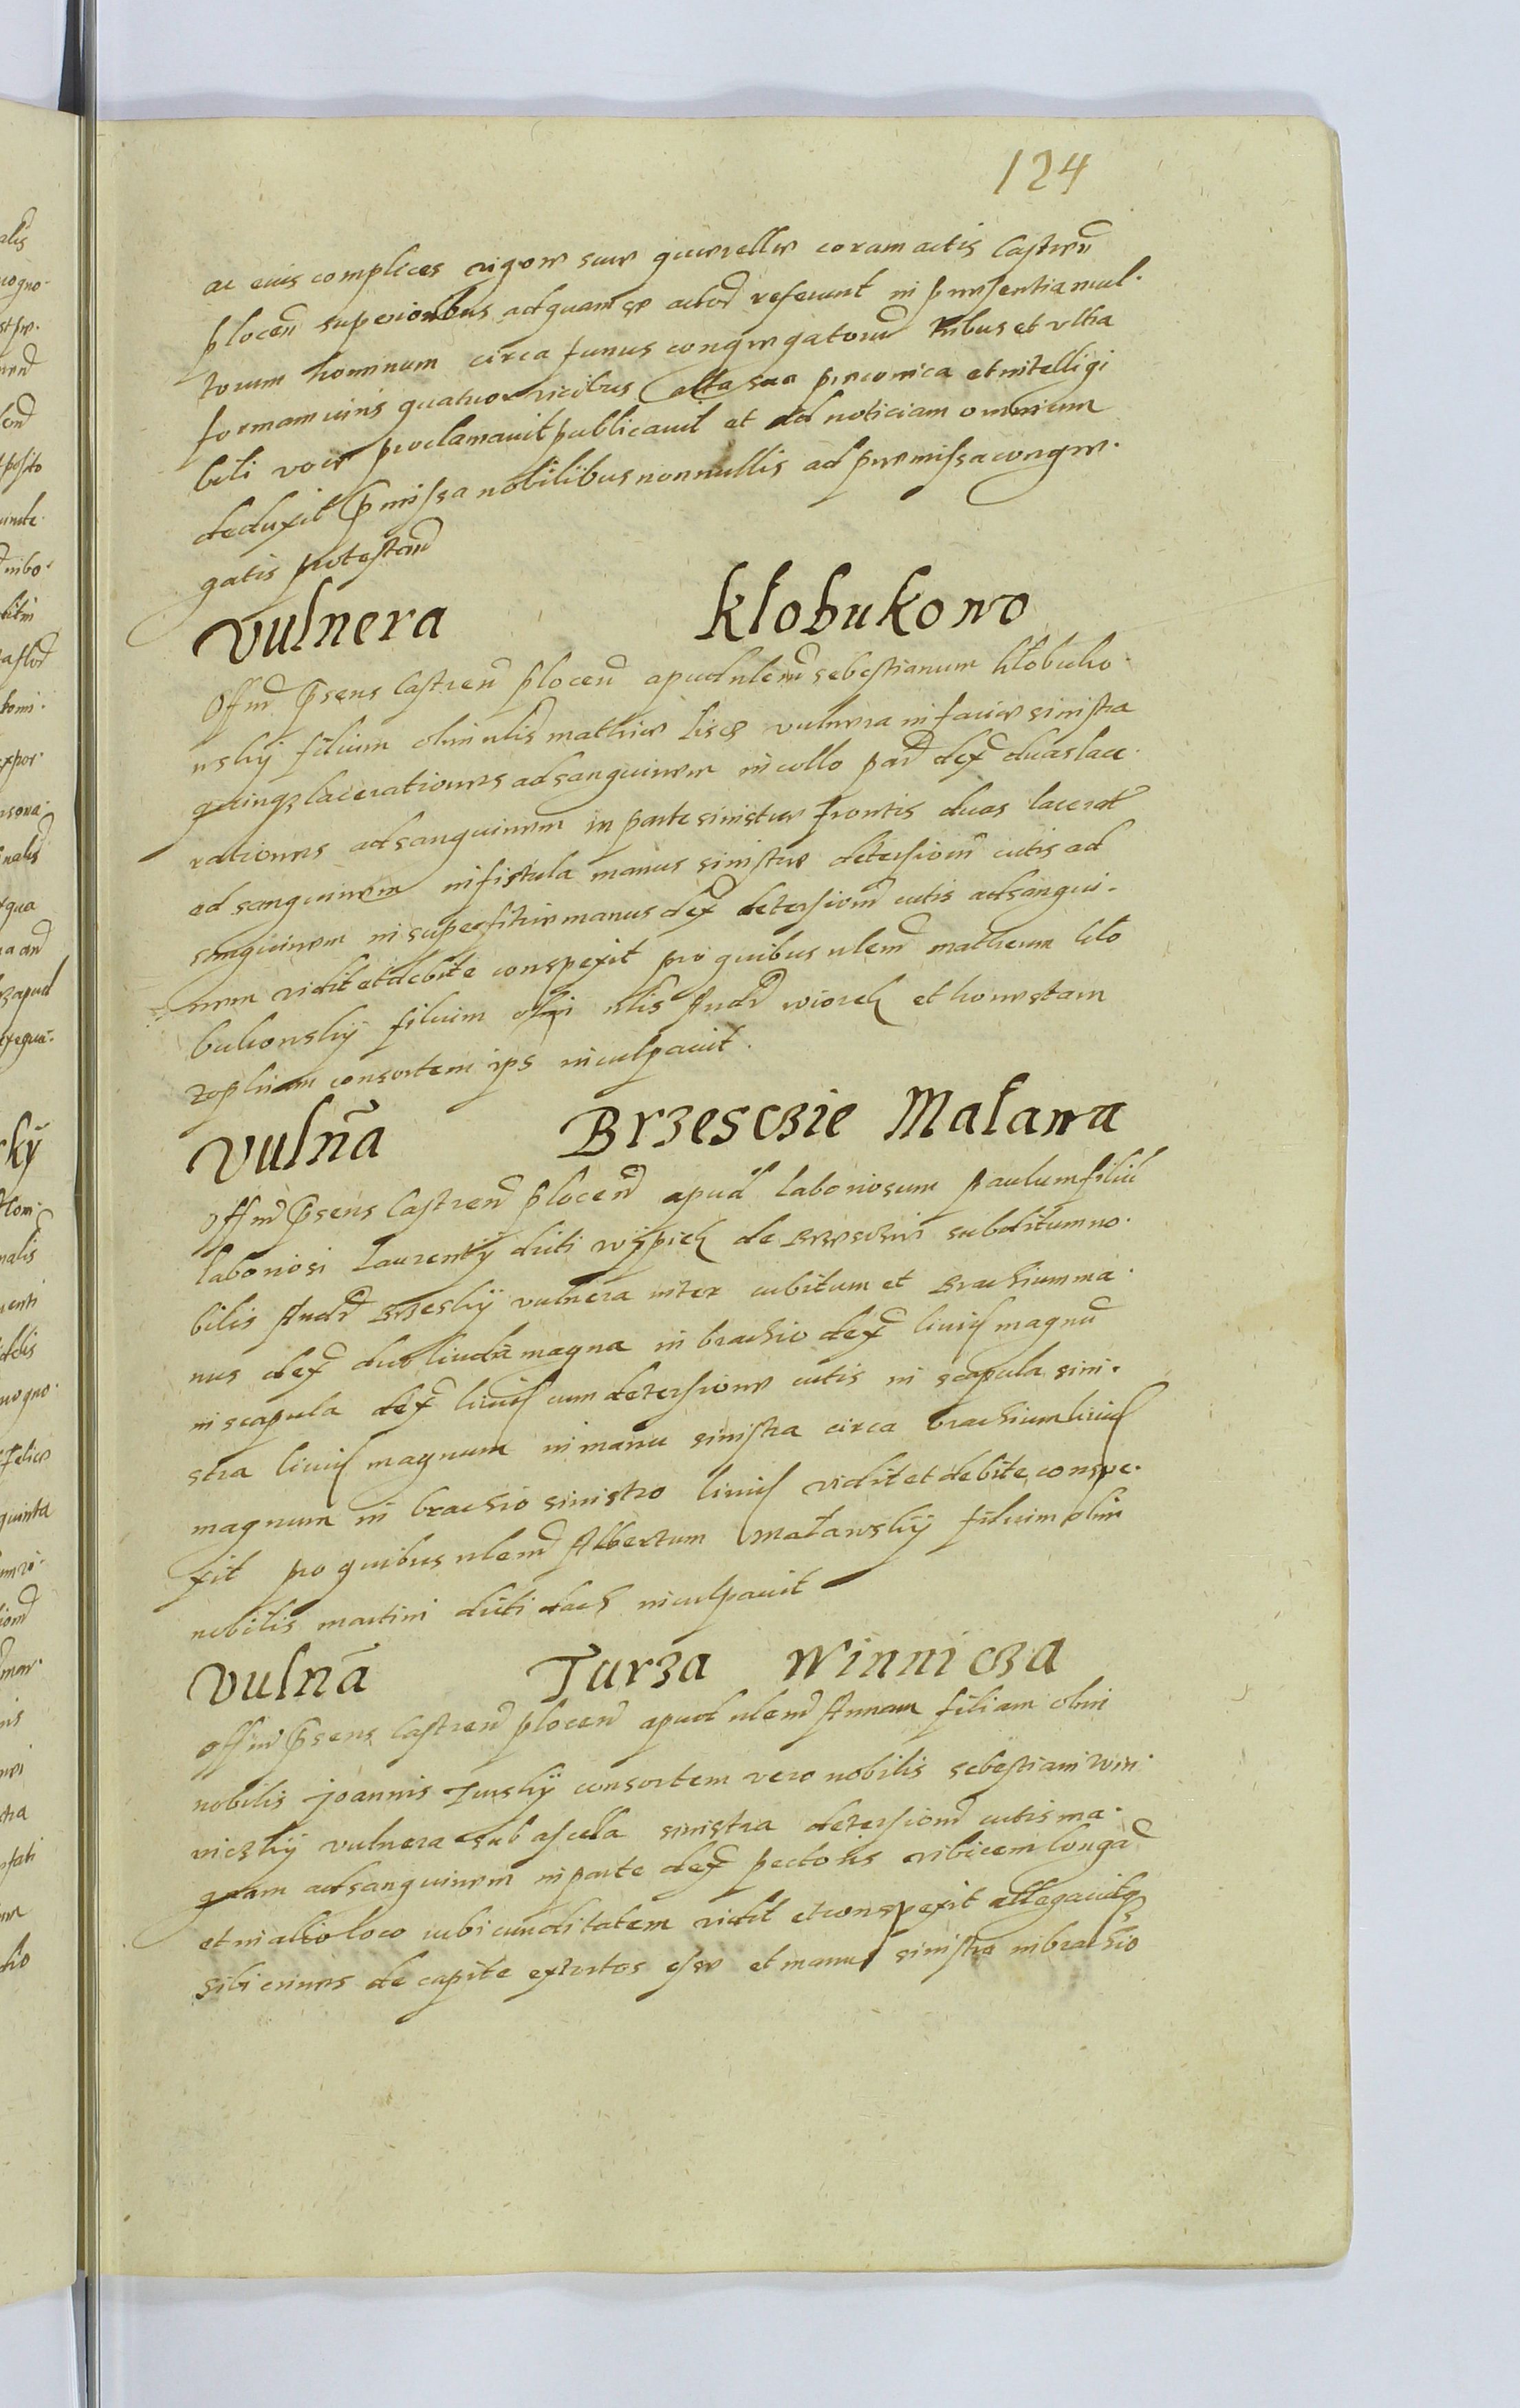 124
ac eius complices vigore suae querellae coram actis Castren̄
plocen̄ superioribus ad quam se actor̄ referunt in praesentia mul-
torum hominum circa funus congregatorum̄ tribus et vltra
formam iuris quatuor vicibus alta sua praeconica et intelligi
bili voce proclamavit publicavit et ad noticiam omnium
deduxit p̄missa nobilibus nonnullis ad praemissa congre-
gatis protestan̄
Vulnera Kłobukowo
Offīm p̄sens Castren̄ plocen̄ apud nlem̄ sebestianum kłobuko-
wskij filium olim nlis mathiae Lisek vulnera in facie sinistra
quinqȝ lacerationes ad sanguinem in collo par̄ dex̄ duas lace-
rationes ad sanguinem in parte sinistrae frontis duas lacerat̄
ad sanguinem in fistula manus sinistrae detersion̄ cutis ad
sanguinem in superfitie manus dex̄ detersion̄ cutis ad sangui-
nem vidit et debite conspexit pro quibus nlem̄ matheum kło
bukowskij filium olim nlis Andr̄ wiorek et honestam
zophiam consortem ips inculpavit.
Vuln̄a Brzesczie Maława
Offīm p̄sens Castren̄ plocen̄ apud laboriosum paulum filiū
laboriosi Laurentij dicti wÿpich de Brzesczie subditum no-
bilis Andr̄ Brzeskij vulnera inter cubitum et Brachium ma-
nus dex̄ duo livida magna in brachio dex̄ livid magnū
in scapula dex̄ livid cum detersione cutis in scapula sini-
stra livid magnum in manu sinistra circa brachium livid
magnum in brachio sinistro livid vidit et debite conspe-
xit pro quibus nlem̄ Albertum Maławskij filium olim
nobilis martini dicti dach inculpavit
Vuln̄a Turza Winnicza
Offīm p̄sens Castren̄ plocen̄ apud nlem̄ Annam filiam olim
nobilis Joannis Turskij consortem vero nobilis sebestiani win-
niczkij vulnera sub ascella sinistra detersion̄ cutis ma-
gnam ad sanguinem in parte dex̄ pectoris vibicem longā
et in alio loco rubicunditatem vidit et conspexit allegavitqȝ
sibi crines de capite extortos esse et manus sinistra in brachio